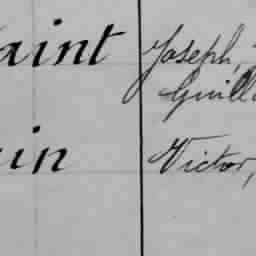 aint Joseph,
Guill
in Victor,